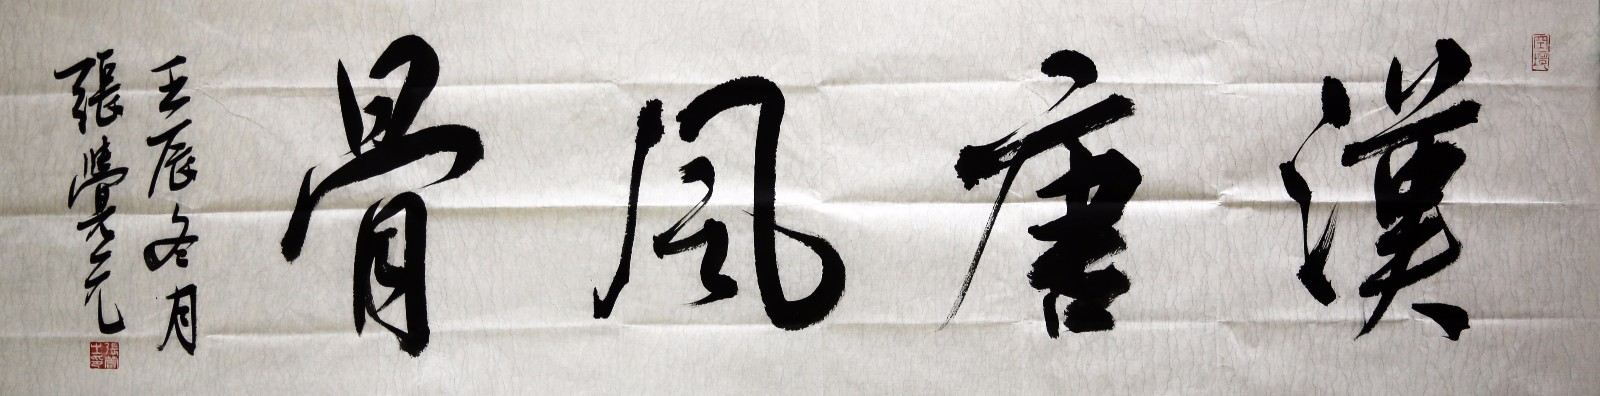 漢唐風骨
壬辰冬月
張覺元